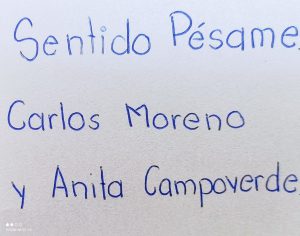 Sentido Pésame
Carlos Moreno
y Anita Campoverde